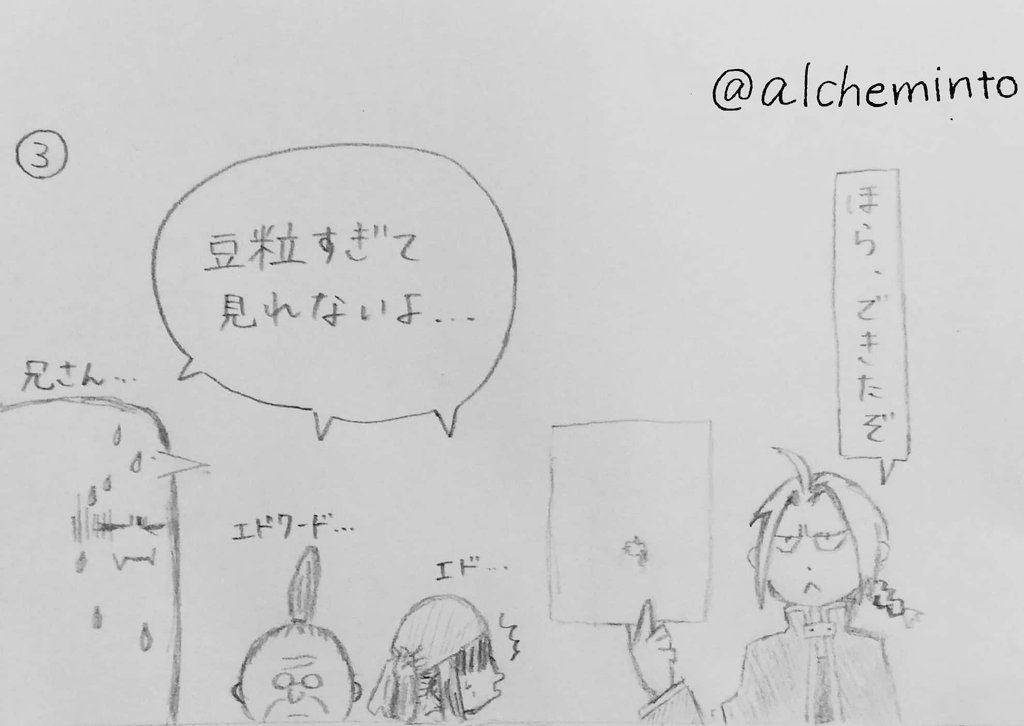 @alcheminto
③
ほら、できたぞ
豆粒すぎて
見れないよ...
兄さん...
エドワード...
エド...